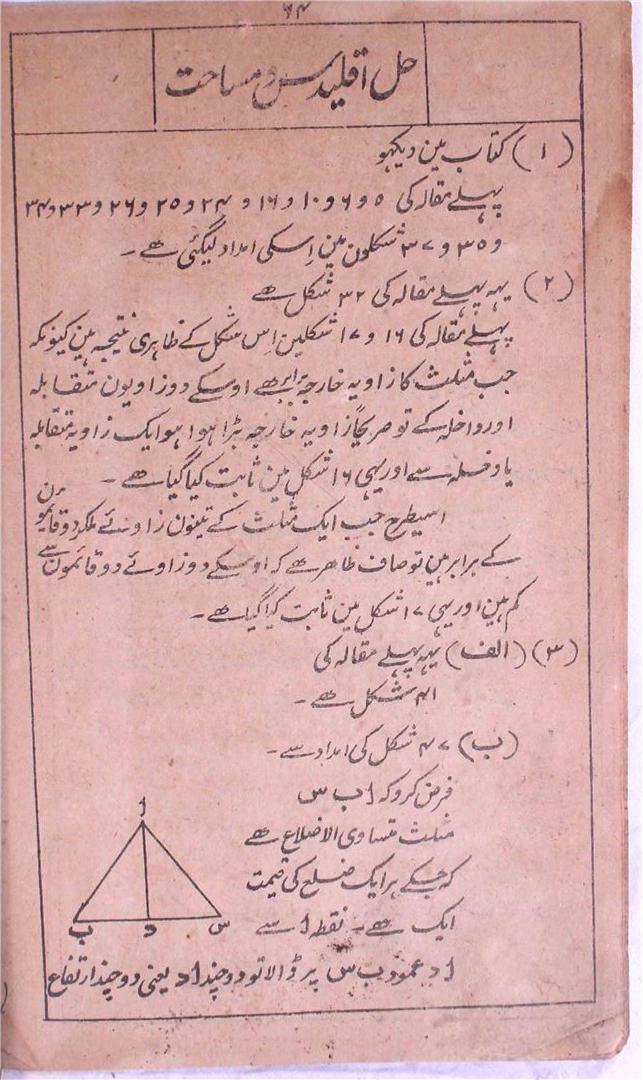 ۶۴
حل اقلیدس و مساحت
(۱) کتاب مین دیکہو
پہلے مقالہ کی ۵ و ۶ و ۱۰ و ۱۶ و ۲۴ و ۲۵ و ۲۶ و ۳۳ و ۳۴
و ۳۵ و ۳۷ شکلون مین اِسکی امداد لیگئی ہے ۔
(۲) یہہ پہلے مقالہ کی ۳۲ شکل ہے
پہلے مقالہ کی ۱۶ و ۱۷ شکلین اِس شکل کے ظاہری نتیجہ ہین کیونکہ
جب مثلث کا زاویہ خارجہ برابر ہے اوسکے دو زاویون متقابلہ
اور داخلہ کے تو صریحاً زاویہ خارجہ بڑا ہوا ہو ایک زاویہ متقابلہ
یا دخلہ سے اور یہی ۱۶ شکل مین ثابت کیا گیا ہے ۔
اسیطرح جب ایک مثلث کے تینون زاوئے ملکر دو قائمون
کے برابر ہین تو صاف ظاہر ہے کہ اوسکے دو زاوئے دو قائمون سے
کم ہین اور یہی ۱۷ شکل مین ثابت کیا گیا ہے ۔
(۳) (الف) یہہ پہلے مقالہ کی
۴۱ شکل ہے ۔
(ب) ۴۷ شکل کی امداد سے ۔
فرض کرو کہ ا ب س
مثلث متساوی الاضلاع ہے
کہ جسکے ہر ایک ضلع کی قیمت
ایک ہے ۔ نقطہ ا سے
ا د عمود ب س پر ڈالا تو دو چند ا د یعنی دو چند ارتفاع
ا
ب د س